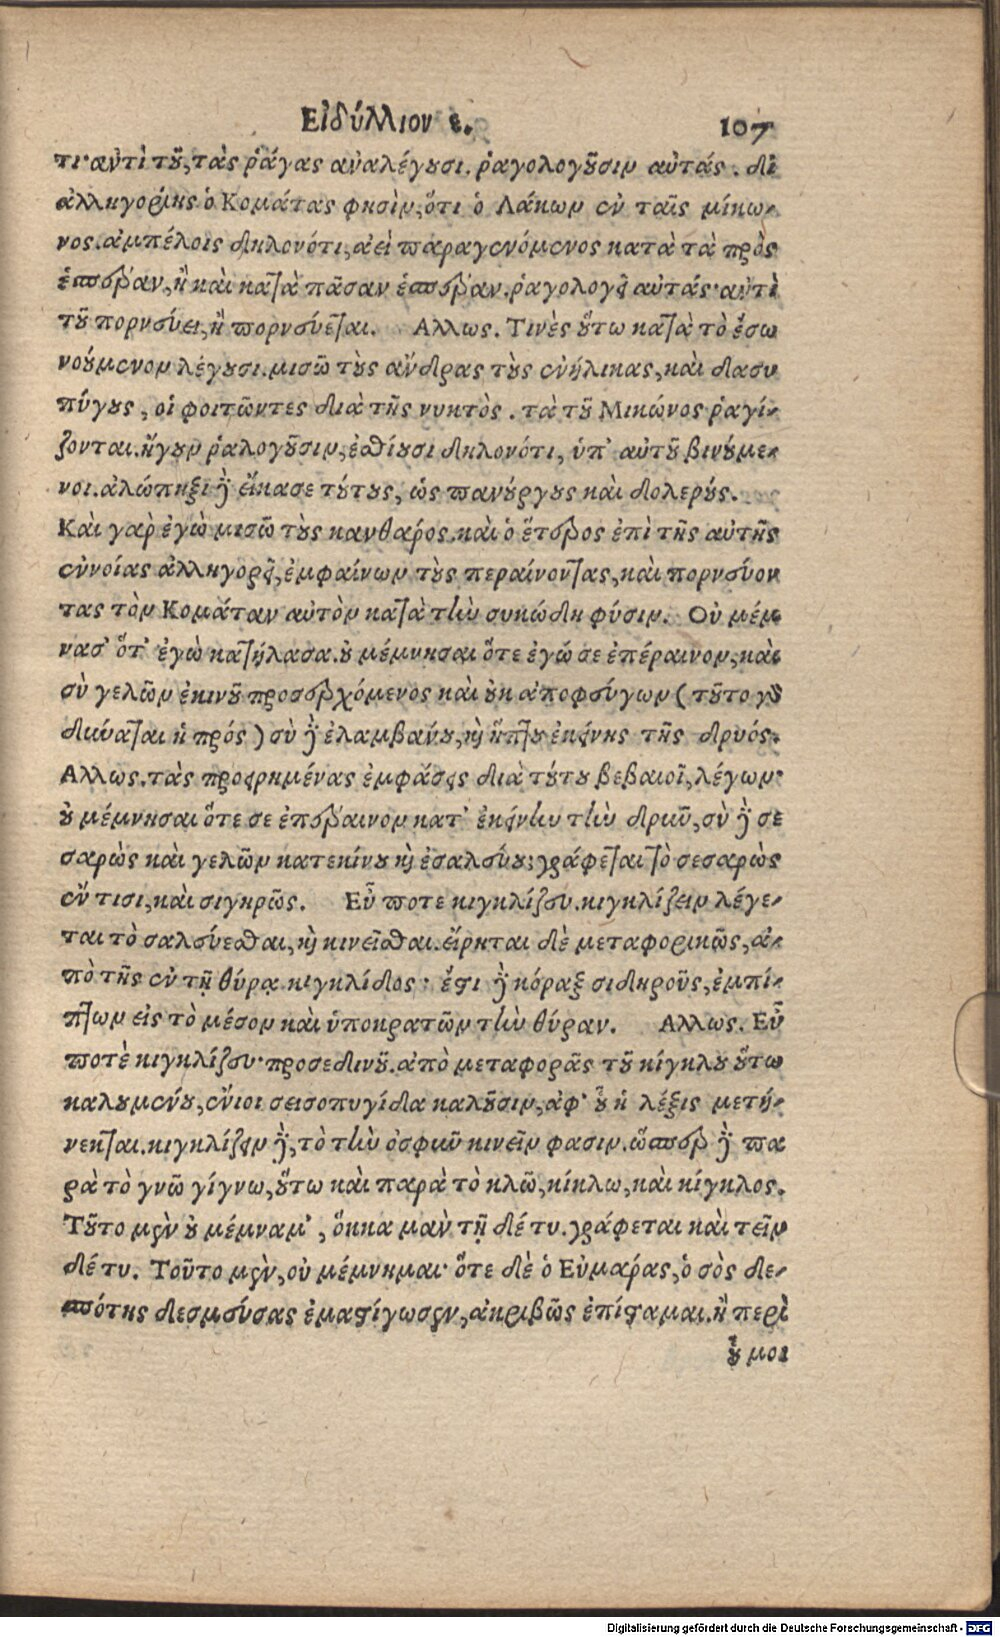 Εἰδύλλιον ε. 107
τι· αντὶ τοῦ, τὰς ῥάγας αναλέγουσι. ῥαγολογοῦσιν αὐτάς. δι
ἀλληγορίης ὁ Κομάτας φησὶν, ὅτι ὁ Λάκων ἐν ταῖς μίκω-
νος. ἀμπέλοις δηλονότι, ἀεὶ παραγενόμενος κατὰ τὰ πρὸς
ἑσπέραν, ἢ καὶ κατὰ πᾶσαν ἑσπέραν. ῥαγολογεῖ αὐτάς· αὐτὶ
τοῦ πορνεύει, ἢ πορνεύεται. Αλλως. Τινὲς οὕτω κατὰ τὸ ἔσω
νούμενον λέγουσι. μισῶ τοὺς ἄνδρας τοὺς ἐνήλικας, καὶ δασυ
πύγους, οἱ φοιτῶντες διὰ τῆς νυκτὸς. τὰ τοῦ Μικώνος ῥαγί-
ζονται. ἤγουν ῥαλογοῦσιν, ἐσθίουσι δηλονότι, ὑπ' αὐτοῦ βινούμε-
νοι. ἀλώπηξι γὰρ εἴκασε τούτους, ὡς πανούργους καὶ δολερούς.
Καὶ γαρ ἐγὼ μισῶ τοὺς κανθαρός. καὶ ὁ ἕτερος ἐπὶ τῆς αὐτῆς
ἐννοίας ἀλληγορεῖ, ἐμφαίνων τοὺς περαίνοντας, καὶ πορνεύον
τας τὸν Κομάταν αὐτὸν κατὰ τὴν συκώδη φύσιν. Οὐ μέμ
νασ' ὅτ' ἐγὼ κατήλασα. οὐ μέμνησαι ὅτε ἐγώ σε ἐπέραινον, καὶ
σὺ γελῶν ἐκινοῦ προσερχόμενος καὶ οὐκ ἀποφεύγων (τοῦτο γὰρ
δύναται ἡ πρός) σὺ γὰρ ἐλαμβάνου, καὶ ἥπτου ἐκείνης τῆς δρυός.
Αλλως. τὰς προειρημένας ἐμφάσεις διὰ τούτου βεβαιοῖ, λέγων·
οὐ μέμνησαι ὅτε σε ἐπέραινον κατ' ἐκείνην τὴν δρῦν, σὺ γὰρ σε
σαρὼς καὶ γελῶν κατεκίνου καὶ ἐσαλεύου; γράφεται τὸ σεσαρὼς
ἔν τισι, καὶ σιγηρῶς. Εὖ ποτε κιγκλίζευ. κιγκλίζειν λέγε-
ται τὸ σαλεύεσθαι, καὶ κινεῖσθαι. εἴρηται δὲ μεταφορικῶς, ἀ-
πὸ τῆς ἐν τῇ θύρᾳ κιγκλίδος· ἔστι γὰρ κόραξ σιδηροῦς, ἐμπί-
πτων εἰς τὸ μέσον καὶ ὑποκρατῶν τὴν θύραν. Αλλως. Εὖ
ποτὲ κιγκλίζευ· προσεδινοῦ. ἀπὸ μεταφορᾶς τοῦ κίγκλου οὕτω
καλουμένου, ἔνιοι σεισοπυγίδα καλοῦσιν, ἀφ' οὗ ἡ λέξις μετή-
νεκται. κιγκλίζειν γὰρ, τὸ τὴν ὀσφῦν κινεῖν φασιν. ὥσπερ γὰρ πα
ρὰ τὸ γνῶ γίγνω, οὕτω καὶ παρὰ τὸ κλῶ, κίκλω, καὶ κίγκλος.
Τοῦτο μὲν οὐ μέμναμ', ὅκκα μαν τῇ δέ τυ. γράφεται καὶ τεῖν
δέ τυ. Τοῦτο μὲν, οὐ μέμνημαι· ὅτε δὲ ὁ Εὐμαράς, ὁ σὸς δε-
σπότης δεσμεύσας ἐμαστίγωσεν, ἀκριβῶς ἐπίσταμαι. ἢ περὶ
οὗ μοι
Digitalisierung gefördert durch die Deutsche Forschungsgemeinschaft - DFG